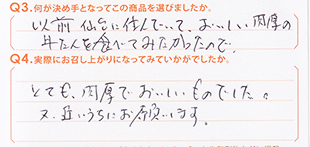 Q3.何が決め手となってこの商品を選びましたか。
以前仙台に住んでいて、おいしい肉厚の
牛たんを食べてみたかったので。
Q4.実際にお召し上がりになってみていかがでしたか。
とても、肉厚でおいしいものでした。
又、近いうちにお願いします。